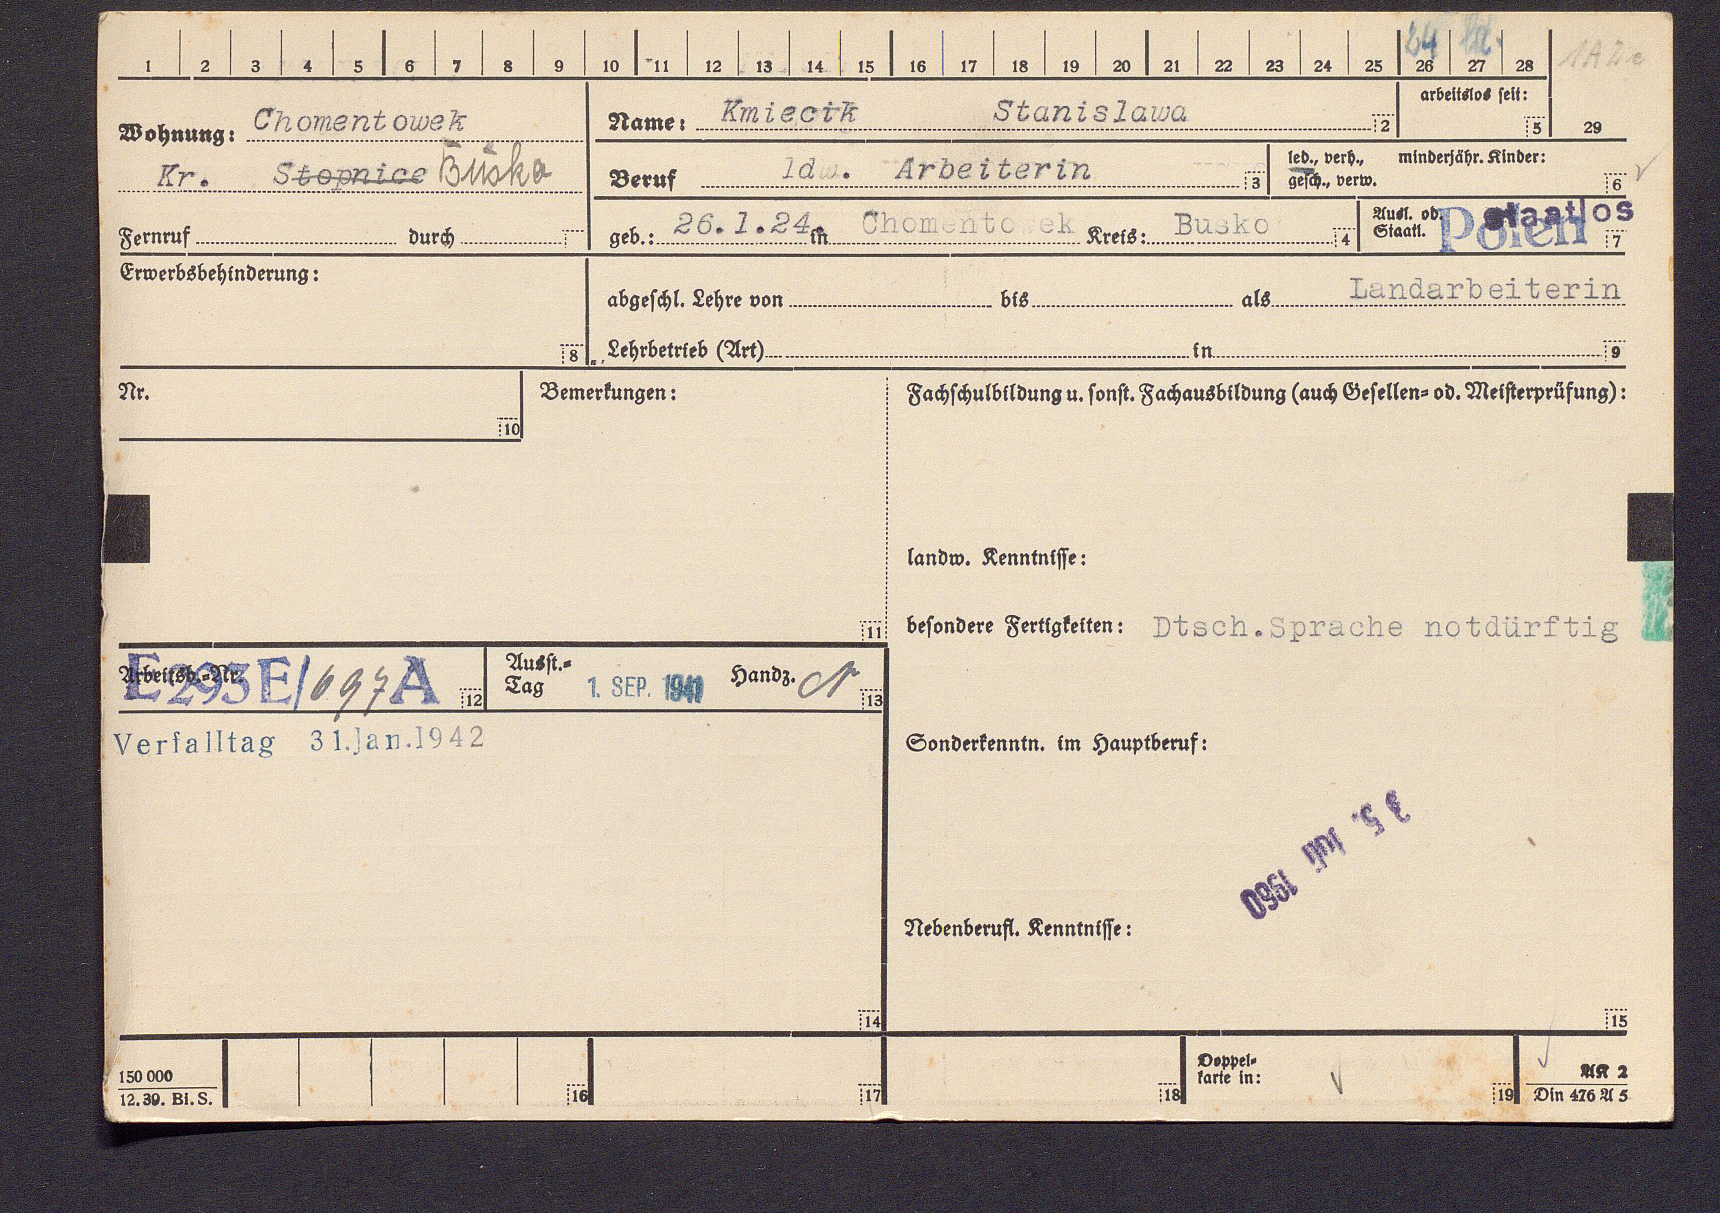 1 2 3 4 5 6 7 8 9 10 11 12 13 14 15 16 17 18 19 20 21 22 23 24 25 26 27 28
24
1A2e
arbeitslos seit:
5 29
Wohnung: Chomentowek
Kr. Stopnice Busko
Fernruf durch
Name: Kmiecik Stanislawa 2
Beruf ldw. Arbeiterin 3
led., verh., gesch., verw.
minderjähr. Kinder:
6
geb.: 26.1.24. in Chomentowek Kreis: Busko 4
Ausl. od. Staatl. Polen staatlos 7
Erwerbsbehinderung:
8
abgeschl. Lehre von bis als Landarbeiterin
Lehrbetrieb (Art) in 9
Nr.
10
Bemerkungen:
11
Fachschulbildung u. sonst. Fachausbildung (auch Gesellen- od. Meisterprüfung):
landw. Kenntnisse:
besondere Fertigkeiten: Dtsch.Sprache notdürftig
Arbeitsb.-Nr. E293E/697A 12
Ausst.-Tag 1. SEP. 1941 Handz. 13
Verfalltag 31.Jan.1942
14
Sonderkenntn. im Hauptberuf:
Juli 1960
Nebenberufl. Kenntnisse:
15
150 000
12. 39. Bi. S.
16 17 18
Doppel-
karte in:
19
AK 2
Din 476 A 5